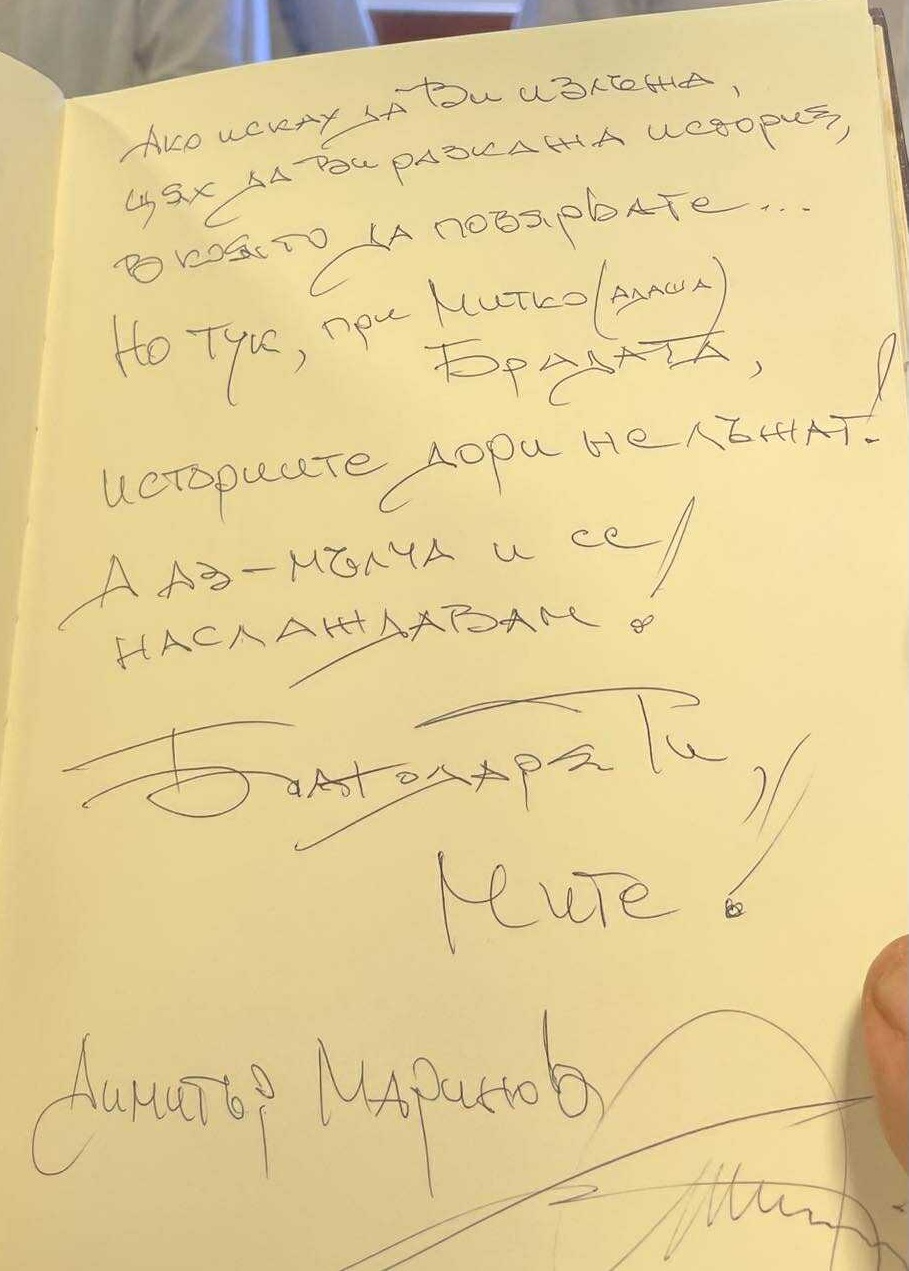 Ако исках да Ви излъжа,
щях да Ви разкажа история,
в която да повярвате...
Но тук, при Митко (адаша)
Брадата,
историите дори не лъжат!
А аз - мълча и се
наслаждавам!
Благодаря Ти,
Мите!
Димитър Маринов